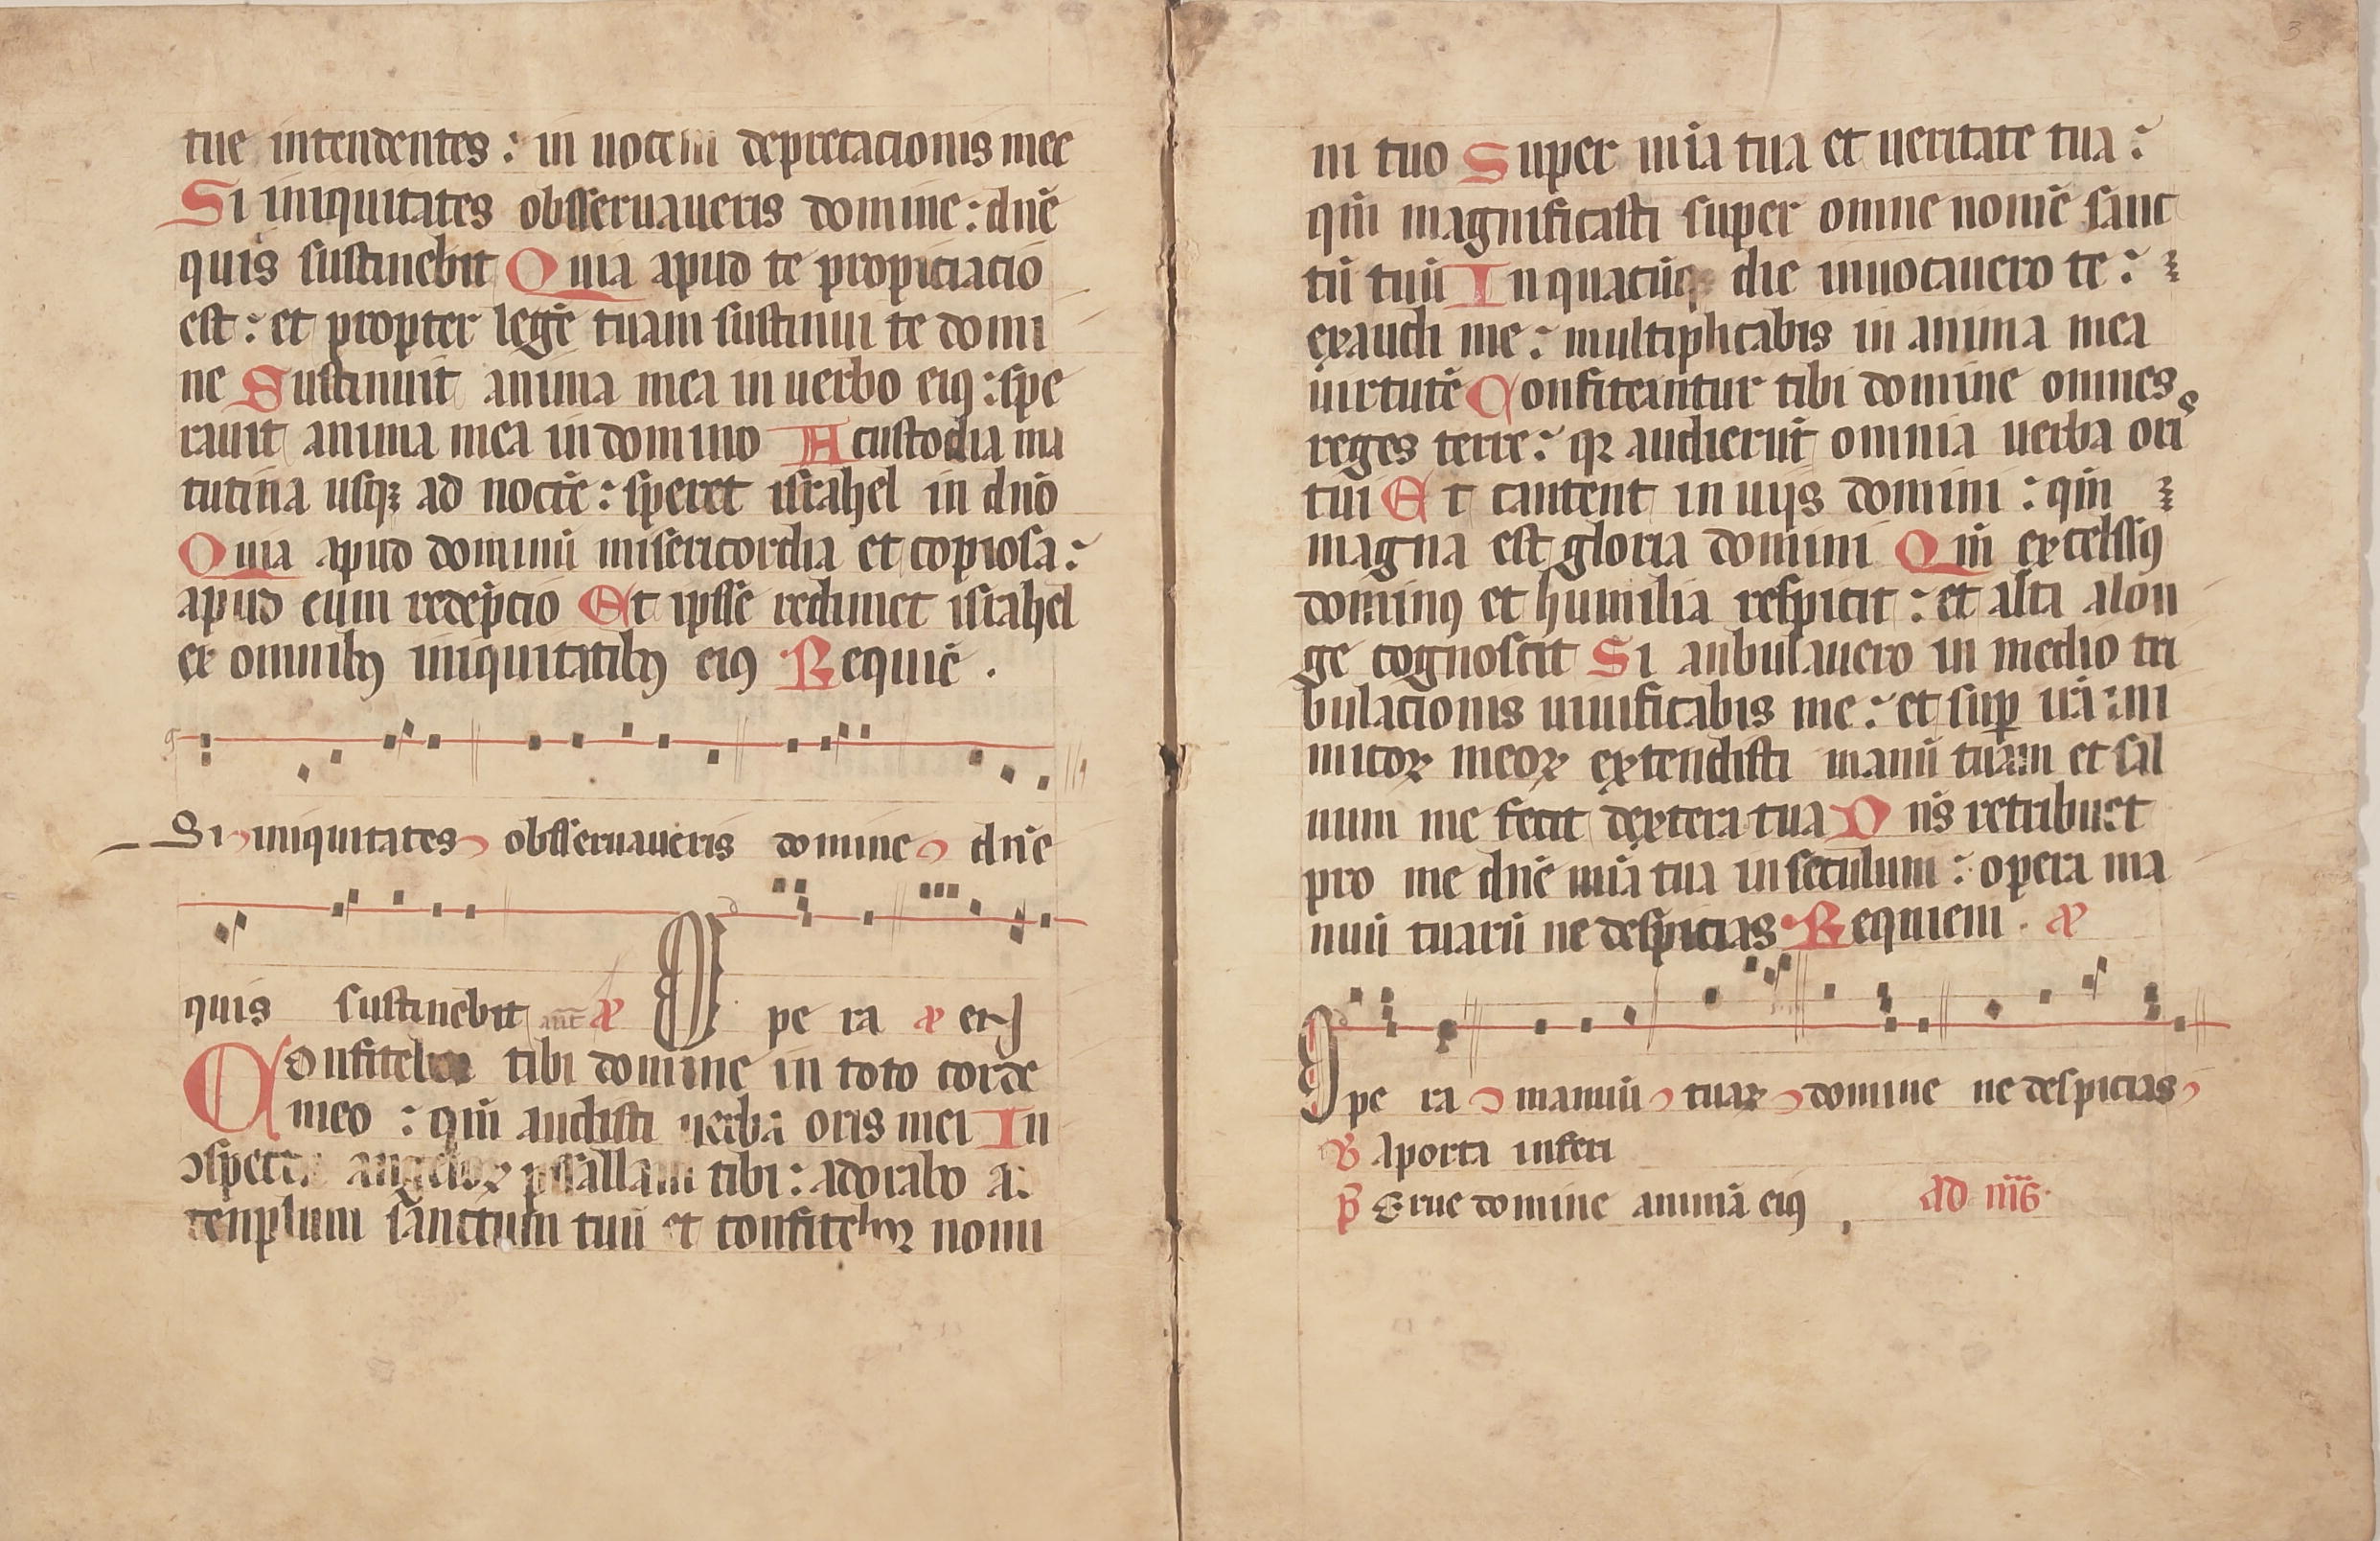 tue intendentes : in uocem deprecacionis mee
Si iniquitates obsseruaueris domine : dn̄e
quis sustinebit Quia apud te propiciacio
est : et propter legē tuam sustinui te domi
ne Sustinuit anima mea in uerbo eiꝰ : spe
rauit anima mea in domino A custodia ma
tutina usqꝫ ad noctē : speret israhel in dn̄o
Quia apud dominū misericordia et copiosa :
apud eum redēpcio Et ipsse redimet israhel
ex omnibꝰ iniquitatibꝰ eiꝰ Requiē .
Si iniquitates obsseruaueris domine dn̄e
quis sustinebit ant̄ ꝶ O pe ra ꝶ
Confitebor tibi domine in toto corde
meo : qm̄ audisti uerba oris mei In
ↄspectu angeloꝝ pssallam tibi : adorabo a.
templum sanctum tuū et confitebor nomi
3
ni tuo Super mīa tua et ueritate tua :
qm̄ magnificasti super omne nomē sanc
tū tuū In quacūqꝫ die inuocauero te :
exaudi me : multiplicabis in anima mea
uirtutē Confiteantur tibi domine omnes
reges terre : qꝛ audierūt omnia uerba ori
tui Et cantent in uijs domini : qm̄
magna est gloria domini Qm̄ excelssꝰ
dominꝰ et humilia respicit : et alta alon
ge cognoscit Si anbulauero in medio tri
bulacionis uiuificabis me : et suꝑ irā ini
micoꝝ meoꝝ extendisti manū tuam et sal
uum me fecit dextera tua Dn̄s retribuet
pro me dn̄e mīa tua in seculum : opera ma
nuū tuarū ne despicias Requiem . ꝶ
Ope ra manuū tuaꝝ domine ne despicias
Aporta inferi
Erue domine animā eiꝰ Ad